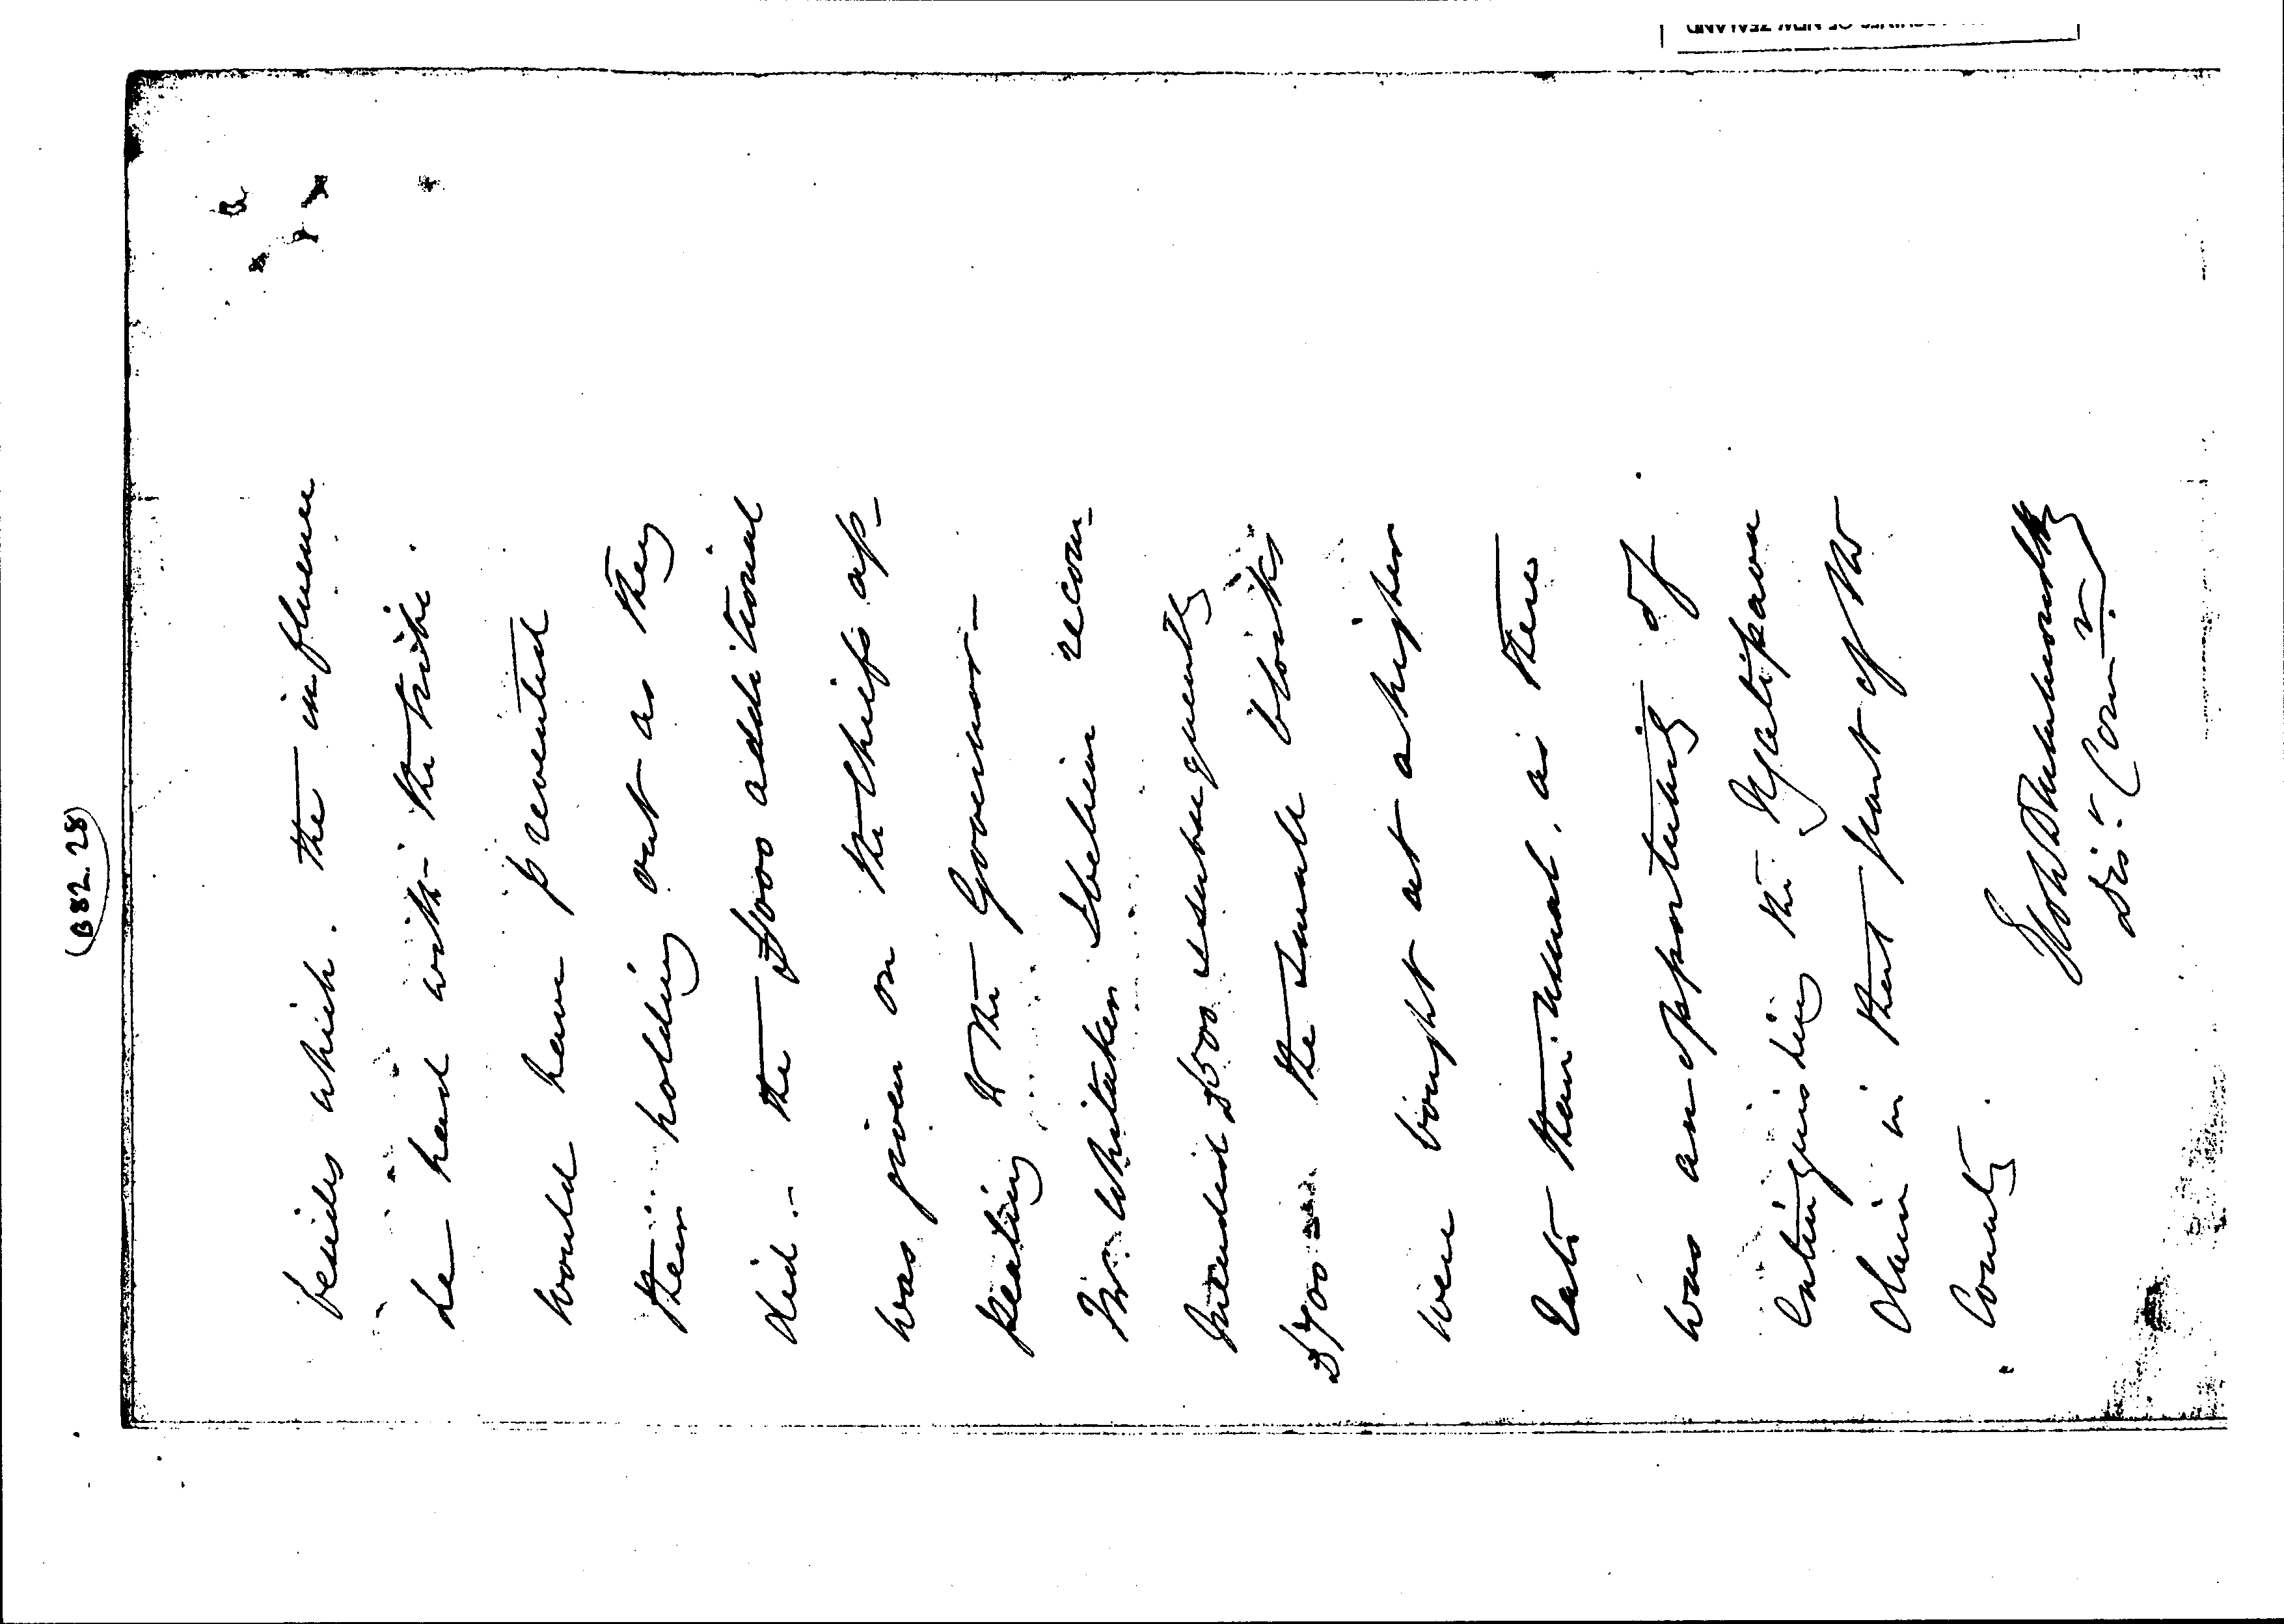 (B82.28)
besides which. the influence
he had with the tribe.
would have prevented
their holding out as they
did. - the £700 additional
was given on the Chiefs ap-
pealing to the Governor -
Mr. Whitaker I believe recom-
mended £500 subsequently
£700 the small blocks
were bought at a higher
rate than usual, as there
was an opportunity of
extinguishing the Ngatipaoa
Claim in that part of the
County.
Dis. Comr.
OF NEW ZEALAND